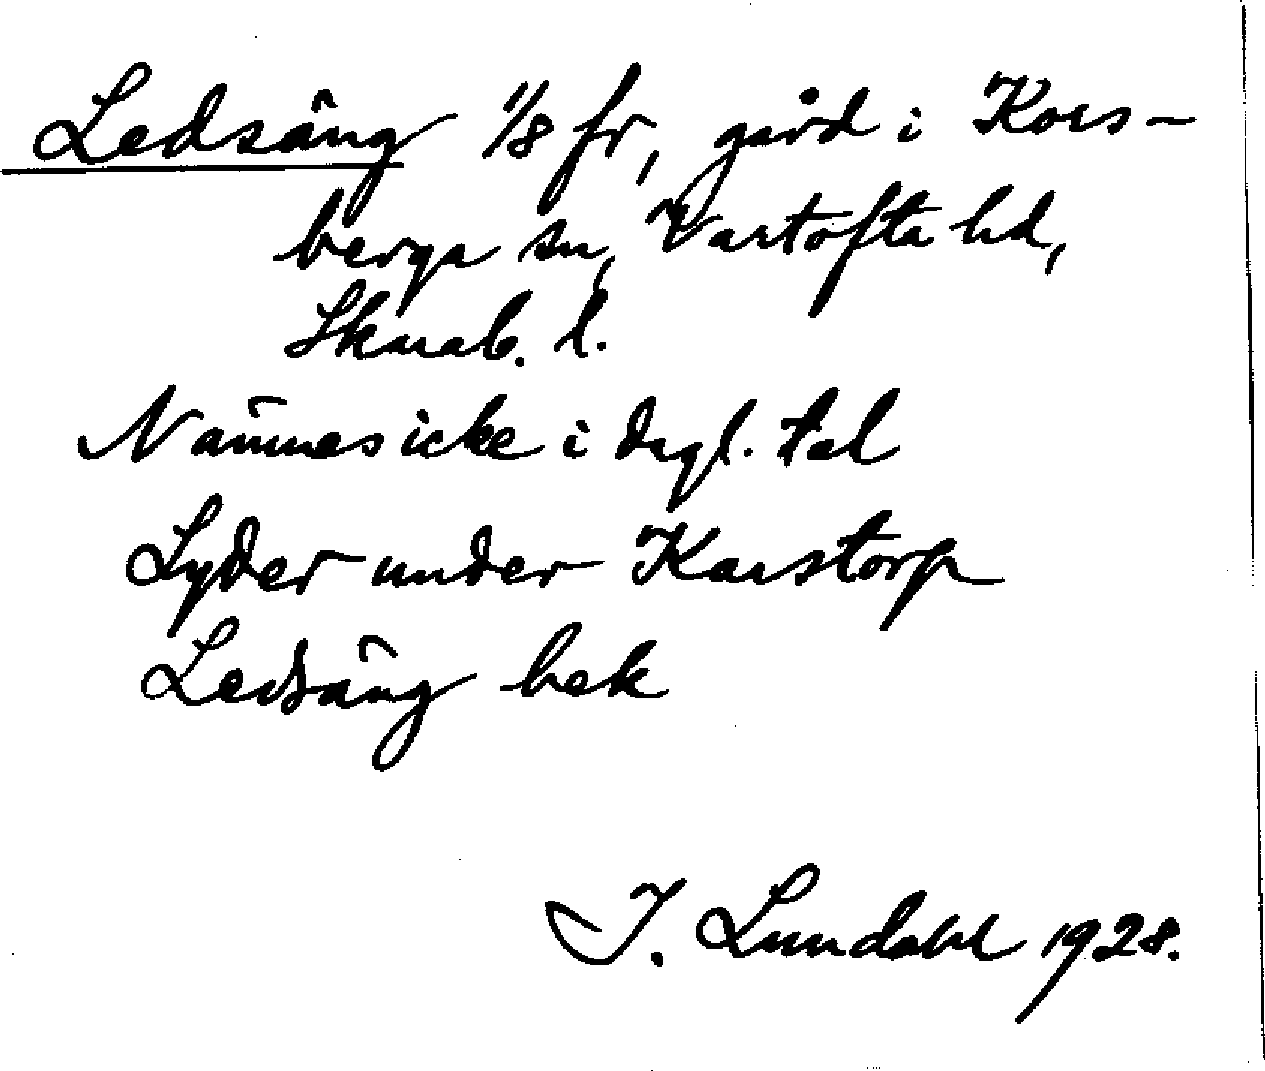 Ledsäng 1/8 fr, gård i Kors-
berga sn, Vartofta hd,
Skarab. l.
Nämnes icke i dagl. tal
Lyder under Karstorp
Ledsäng bek
I. Lundahl 1928.